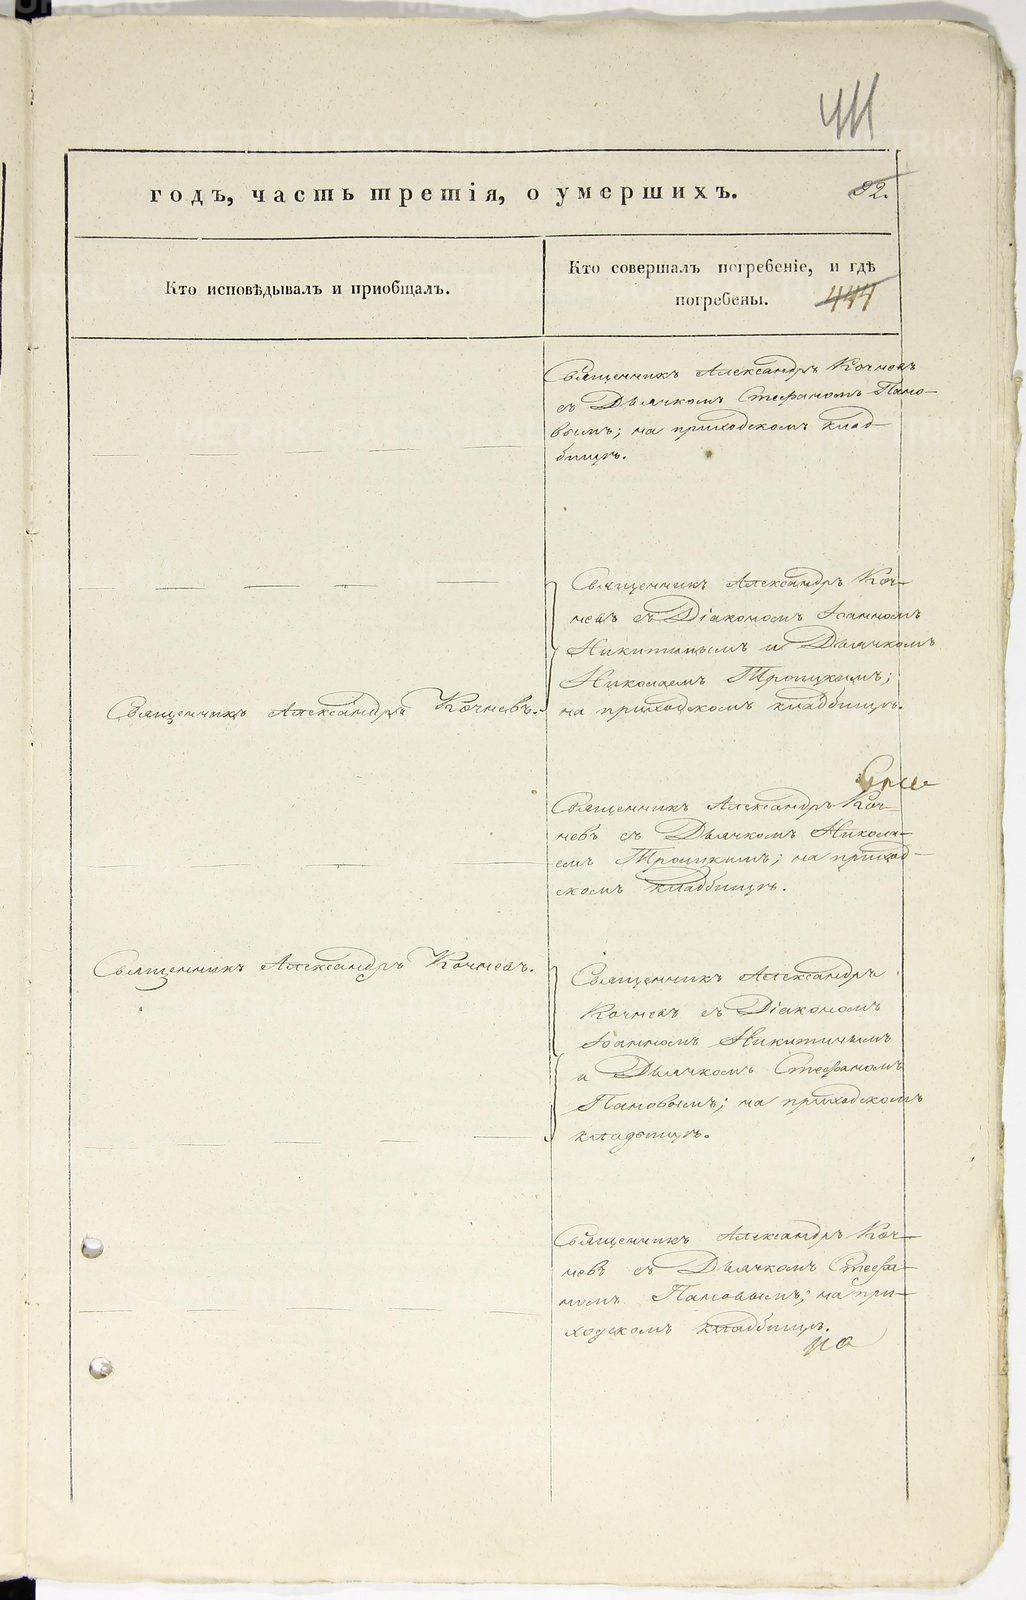 годъ, часть третія, о умершихъ.
92.
Кто исповѣдывалъ и приобщалъ.
Кто совершалъ погребеніе, и гдѣ
погребены.
444
Священникъ Александръ Кочневъ
съ Дьячкомъ Стефаномъ Пано-
вымъ; на приходскомъ клад-
бищѣ.
Священникъ Александръ Коч-
невъ съ Діакономъ Іоанномъ
Никитинымъ и Дьячкомъ
Николаемъ Троицкимъ;
на приходскомъ кладбищѣ.
Священникъ Александръ Кочневъ.
Священникъ Александръ Коч-
невъ съ Дьячкомъ Никола-
емъ Троицкимъ; на приход-
скомъ кладбищѣ.
Священникъ Александръ Кочневъ.
Священникъ Александръ
Кочневъ съ Діакономъ
Іоанномъ Никитинымъ
и Дьячкомъ Стефаномъ
Пановымъ; на приходскомъ
кладбищѣ.
Священникъ Александръ Коч-
невъ съ Дьячкомъ Стефа-
номъ Пановымъ; на при-
ходскомъ кладбищѣ.
METRIKI.GASO-URAL.RU